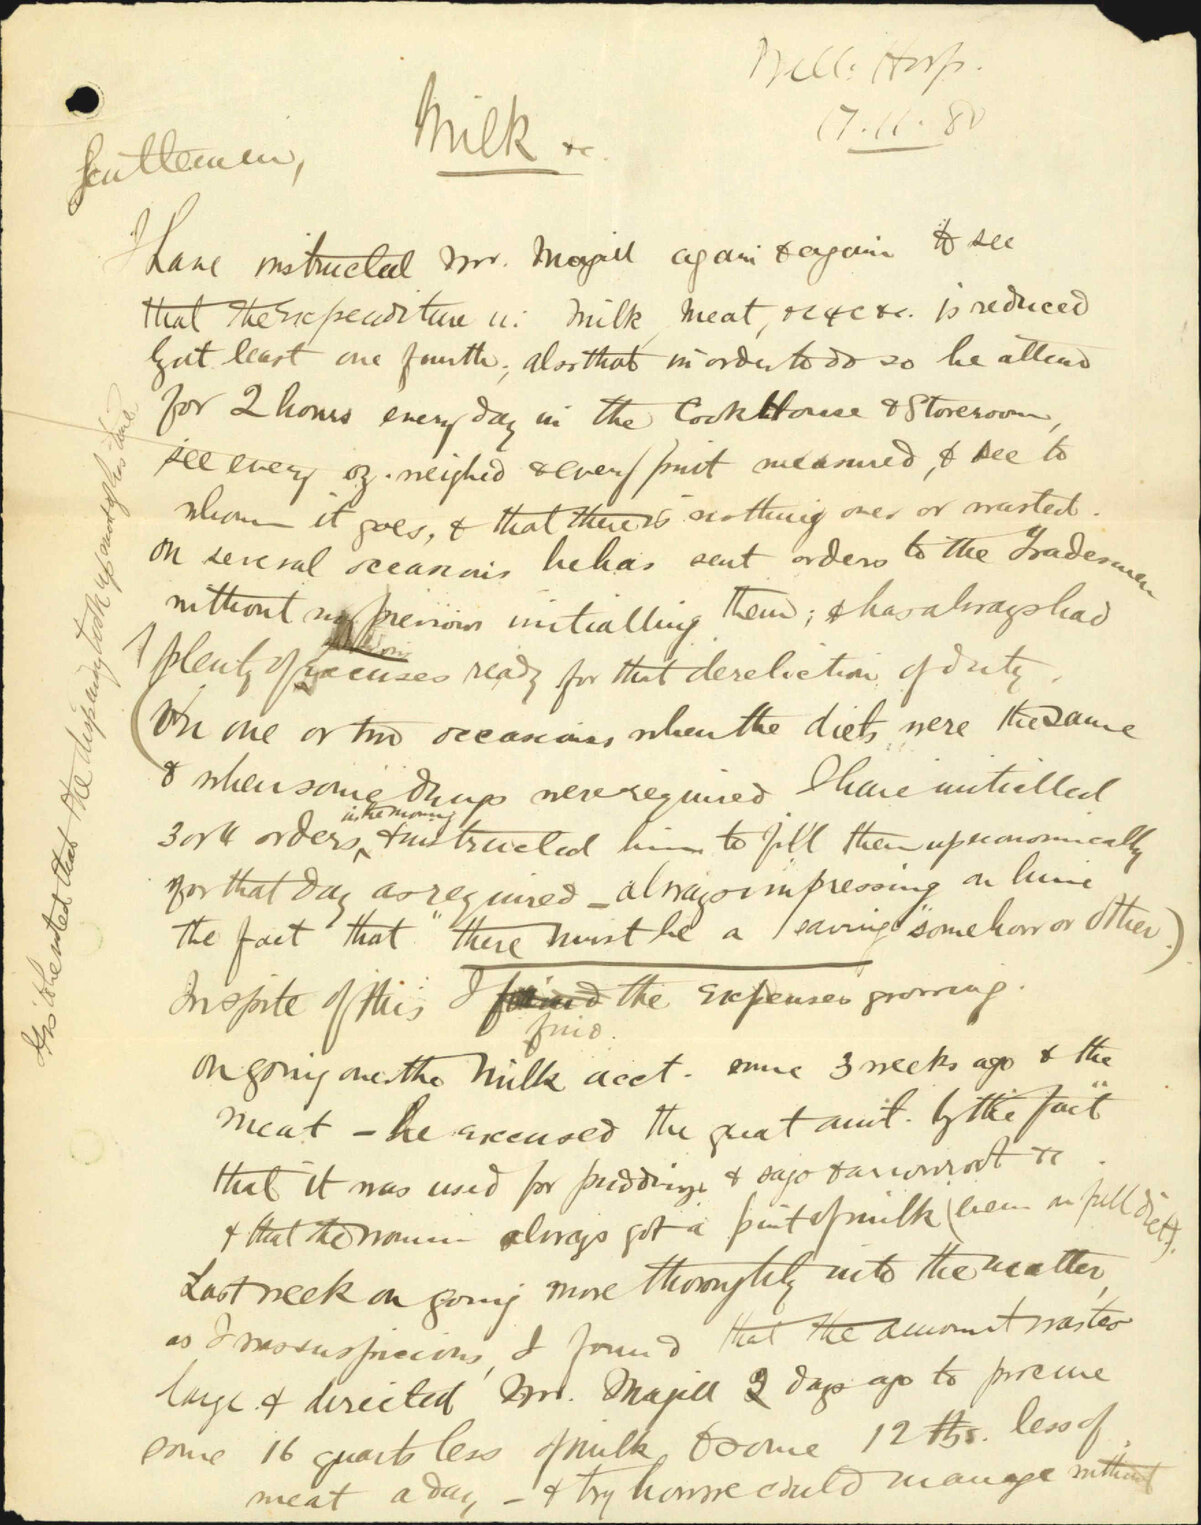 Well: Hosp.
17.11.80
Milk &c.
Gentlemen,
I have instructed Mr. Magill again & again to see
that the Expenditure in Milk, Meat, &c &c &c. is reduced
by at least one fourth; also that in order to do so he attend
for 2 hours every day in the Cook House & Storeroom,
see every oz. weighed & every pint measured, & see to
whom it goes, & that there is nothing over or wasted.
On several occasions he has sent orders to the Tradesmen
without my previous initialling them; & has always had
plenty of excuses ready for that dereliction of duty.
(On one or two occasions when the diets were the same
& when some drugs were required I have initialled
3 or 4 orders in the morning & instructed him to fill them up economically
for that day as required – always impressing on him
the fact that "there must be a saving" somehow or other.)
In spite of this I found the expenses growing.
find.
On going over the Milk acct. some 3 weeks ago & the
Meat – he excused the great amt. by the "fact"
that it was used for puddings & sago & arrowroot &c.
& that the women always got a pint of milk (even on full diet).
Last week on going more thoroughly into the matter,
as I was suspicious, I found that the amount was too
large & directed Mr. Magill 2 days ago to procure
some 16 quarts less of milk, & some 12 lbs. less of
meat a day – & try how we could manage without
that the dispensary took up of his time